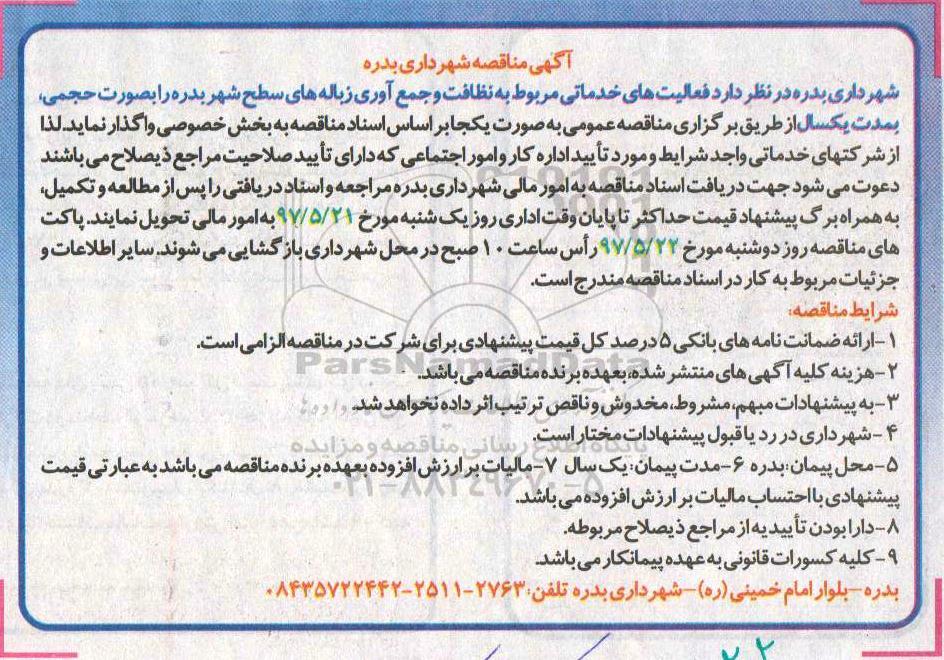 آگهی مناقصه شهرداری بدره
شهرداری بدره در نظر دارد فعالیت های خدماتی مربوط به نظافت و جمع آوری زباله های سطح شهر بدره را بصورت حجمی،
بمدت یکسال از طریق برگزاری مناقصه عمومی به صورت یکجا بر اساس اسناد مناقصه به بخش خصوصی واگذار نماید. لذا
از شرکتهای خدماتی واجد شرایط و مورد تأیید اداره کار و امور اجتماعی که دارای تأیید صلاحیت مراجع ذیصلاح می باشند
دعوت می شود جهت دریافت اسناد مناقصه به امور مالی شهرداری بدره مراجعه و اسناد دریافتی را پس از مطالعه و تکمیل،
به همراه برگ پیشنهاد قیمت حداکثر تا پایان وقت اداری روز یک شنبه مورخ ۹۷/۵/۲۱ به امور مالی تحویل نمایند. پاکت
های مناقصه روز دوشنبه مورخ ۹۷/۵/۲۲ رأس ساعت ۱۰ صبح در محل شهرداری بازگشایی می شوند. سایر اطلاعات و
جزئیات مربوط به کار در اسناد مناقصه مندرج است.
شرایط مناقصه:
۱-ارائه ضمانت نامه های بانکی ۵ درصد کل قیمت پیشنهادی برای شرکت در مناقصه الزامی است.
ParsNamadData
۲-هزینه کلیه آگهی های منتشر شده، بعهده برنده مناقصه می باشد.
۳-به پیشنهادات مبهم، مشروط، مخدوش و ناقص ترتیب اثر داده نخواهد شد.
۴-شهرداری در رد یا قبول پیشنهادات مختار است.
پایگاه اطلاع رسانی مناقصه و مزایده
۵-محل پیمان: بدره ۶-مدت پیمان: یک سال ۷-مالیات بر ارزش افزوده بعهده برنده مناقصه می باشد به عبارتی قیمت
۰۲۱-۸۸۳۴۹۶۷۰-۵
پیشنهادی با احتساب مالیات بر ارزش افزوده می باشد.
۸-دارا بودن تأییدیه از مراجع ذیصلاح مربوطه.
۹-کلیه کسورات قانونی به عهده پیمانکار می باشد.
بدره-بلوار امام خمینی (ره)-شهرداری بدره تلفن: ۲۷۶۳-۲۵۱۱-۰۸۴۳۵۷۲۲۴۴۲